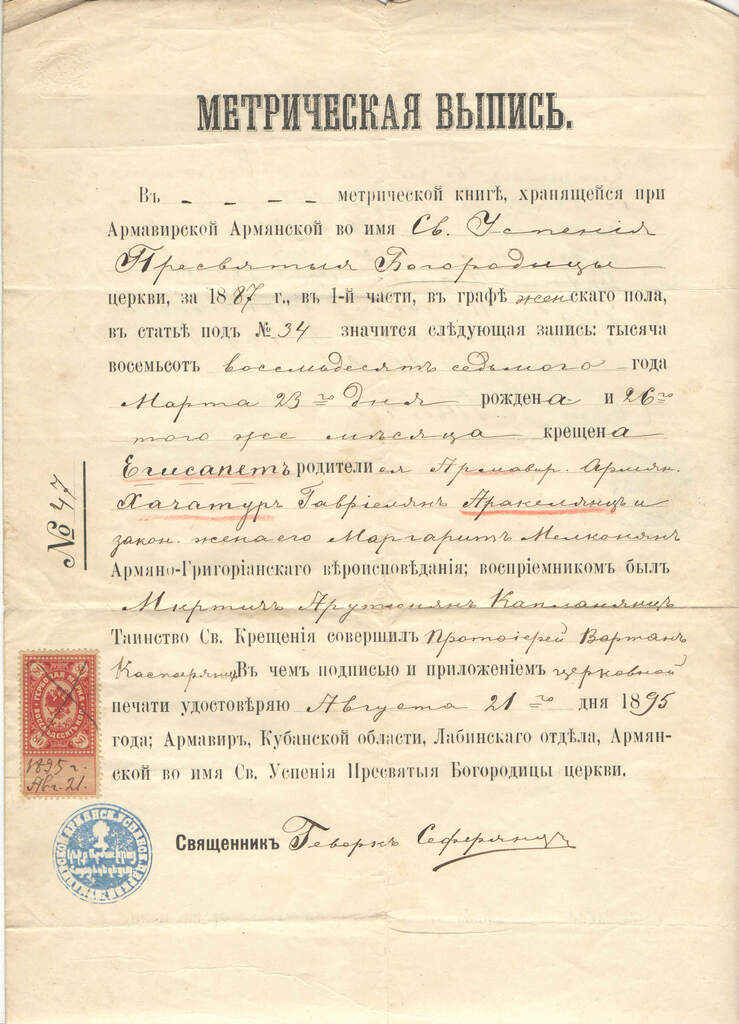 МЕТРИЧЕСКАЯ ВЫПИСЬ.
Въ - - - - метрической книгѣ, хранящейся при
Армавирской Армянской во имя Св. Успенія
Пресвятыя Богородицы
церкви, за 1887 г., въ 1-й части, въ графѣ женскаго пола,
въ статьѣ подъ № 34 значится слѣдующая запись: тысяча
восемьсотъ восемьдесятъ седьмого года
Марта 23 го дня рождена и 26 го
того же мѣсяца крещена
Егисапетъ родители ея Армавир. Армян.
Хачатуръ Гавріелянъ Аракелянцъ и
закон. жена его Маргаритъ Мелконянъ
Армяно-Григоріанскаго вѣроисповѣданія; воспріемникомъ былъ
Мкртичъ Арутюнянъ Капланянцъ
Таинство Св. Крещенія совершилъ Протоіерей Вартанъ
Каспарянцъ Въ чемъ подписью и приложеніемъ церковной
печати удостовѣряю Августа 21 го дня 1895
года; Армавиръ, Кубанской области, Лабинскаго отдѣла, Армян-
ской во имя Св. Успенія Пресвятыя Богородицы церкви.
Священникъ Геворкъ Сеферянцъ
№ 47
ГЕРБОВАЯ МАРКА
80
1895 г.
Авг. 21.